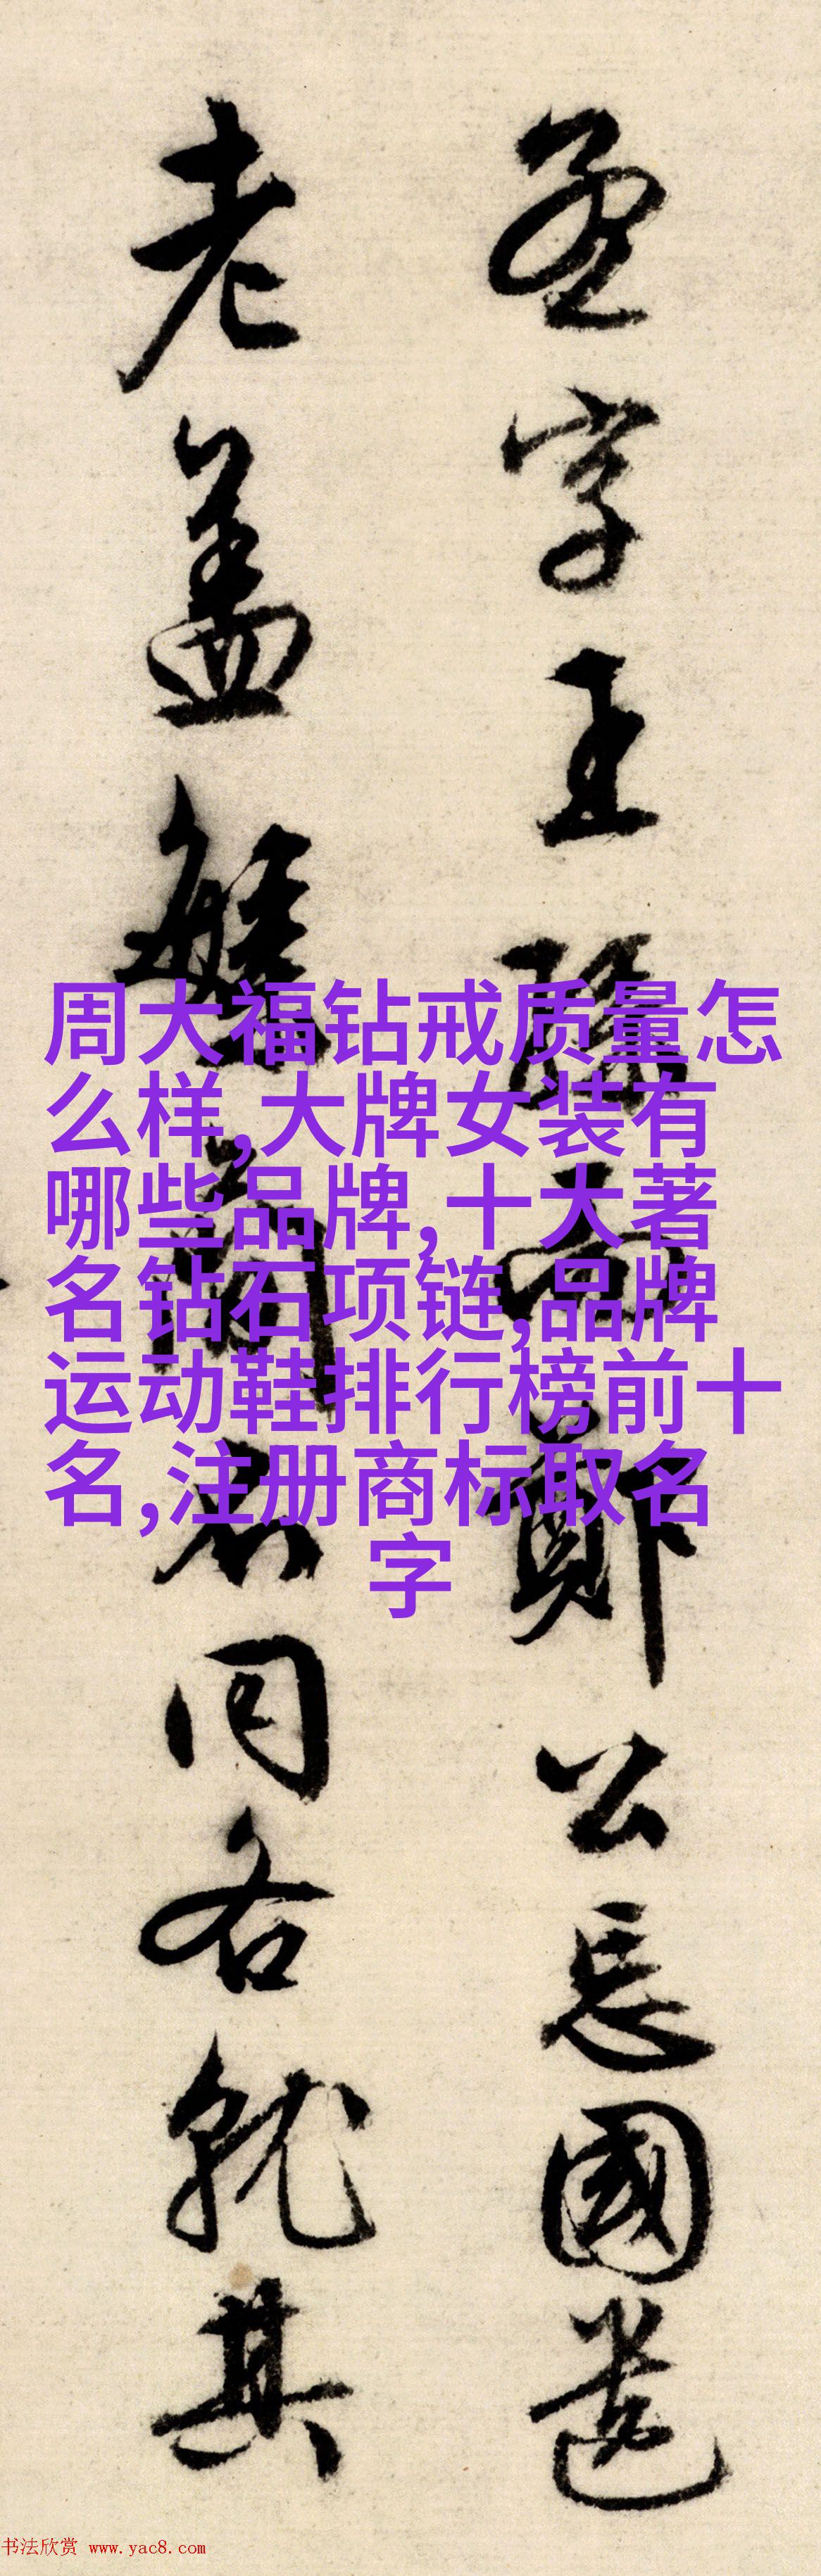 周大福钻戒质量怎
么样,大牌女装有
哪些品牌,十大著
名钻石项链,品牌
运动鞋排行榜前十
名,注册商标取名
字
字王
鄭公忘國遺
老盖
名同各就其
书法欣赏 www.yac8.com